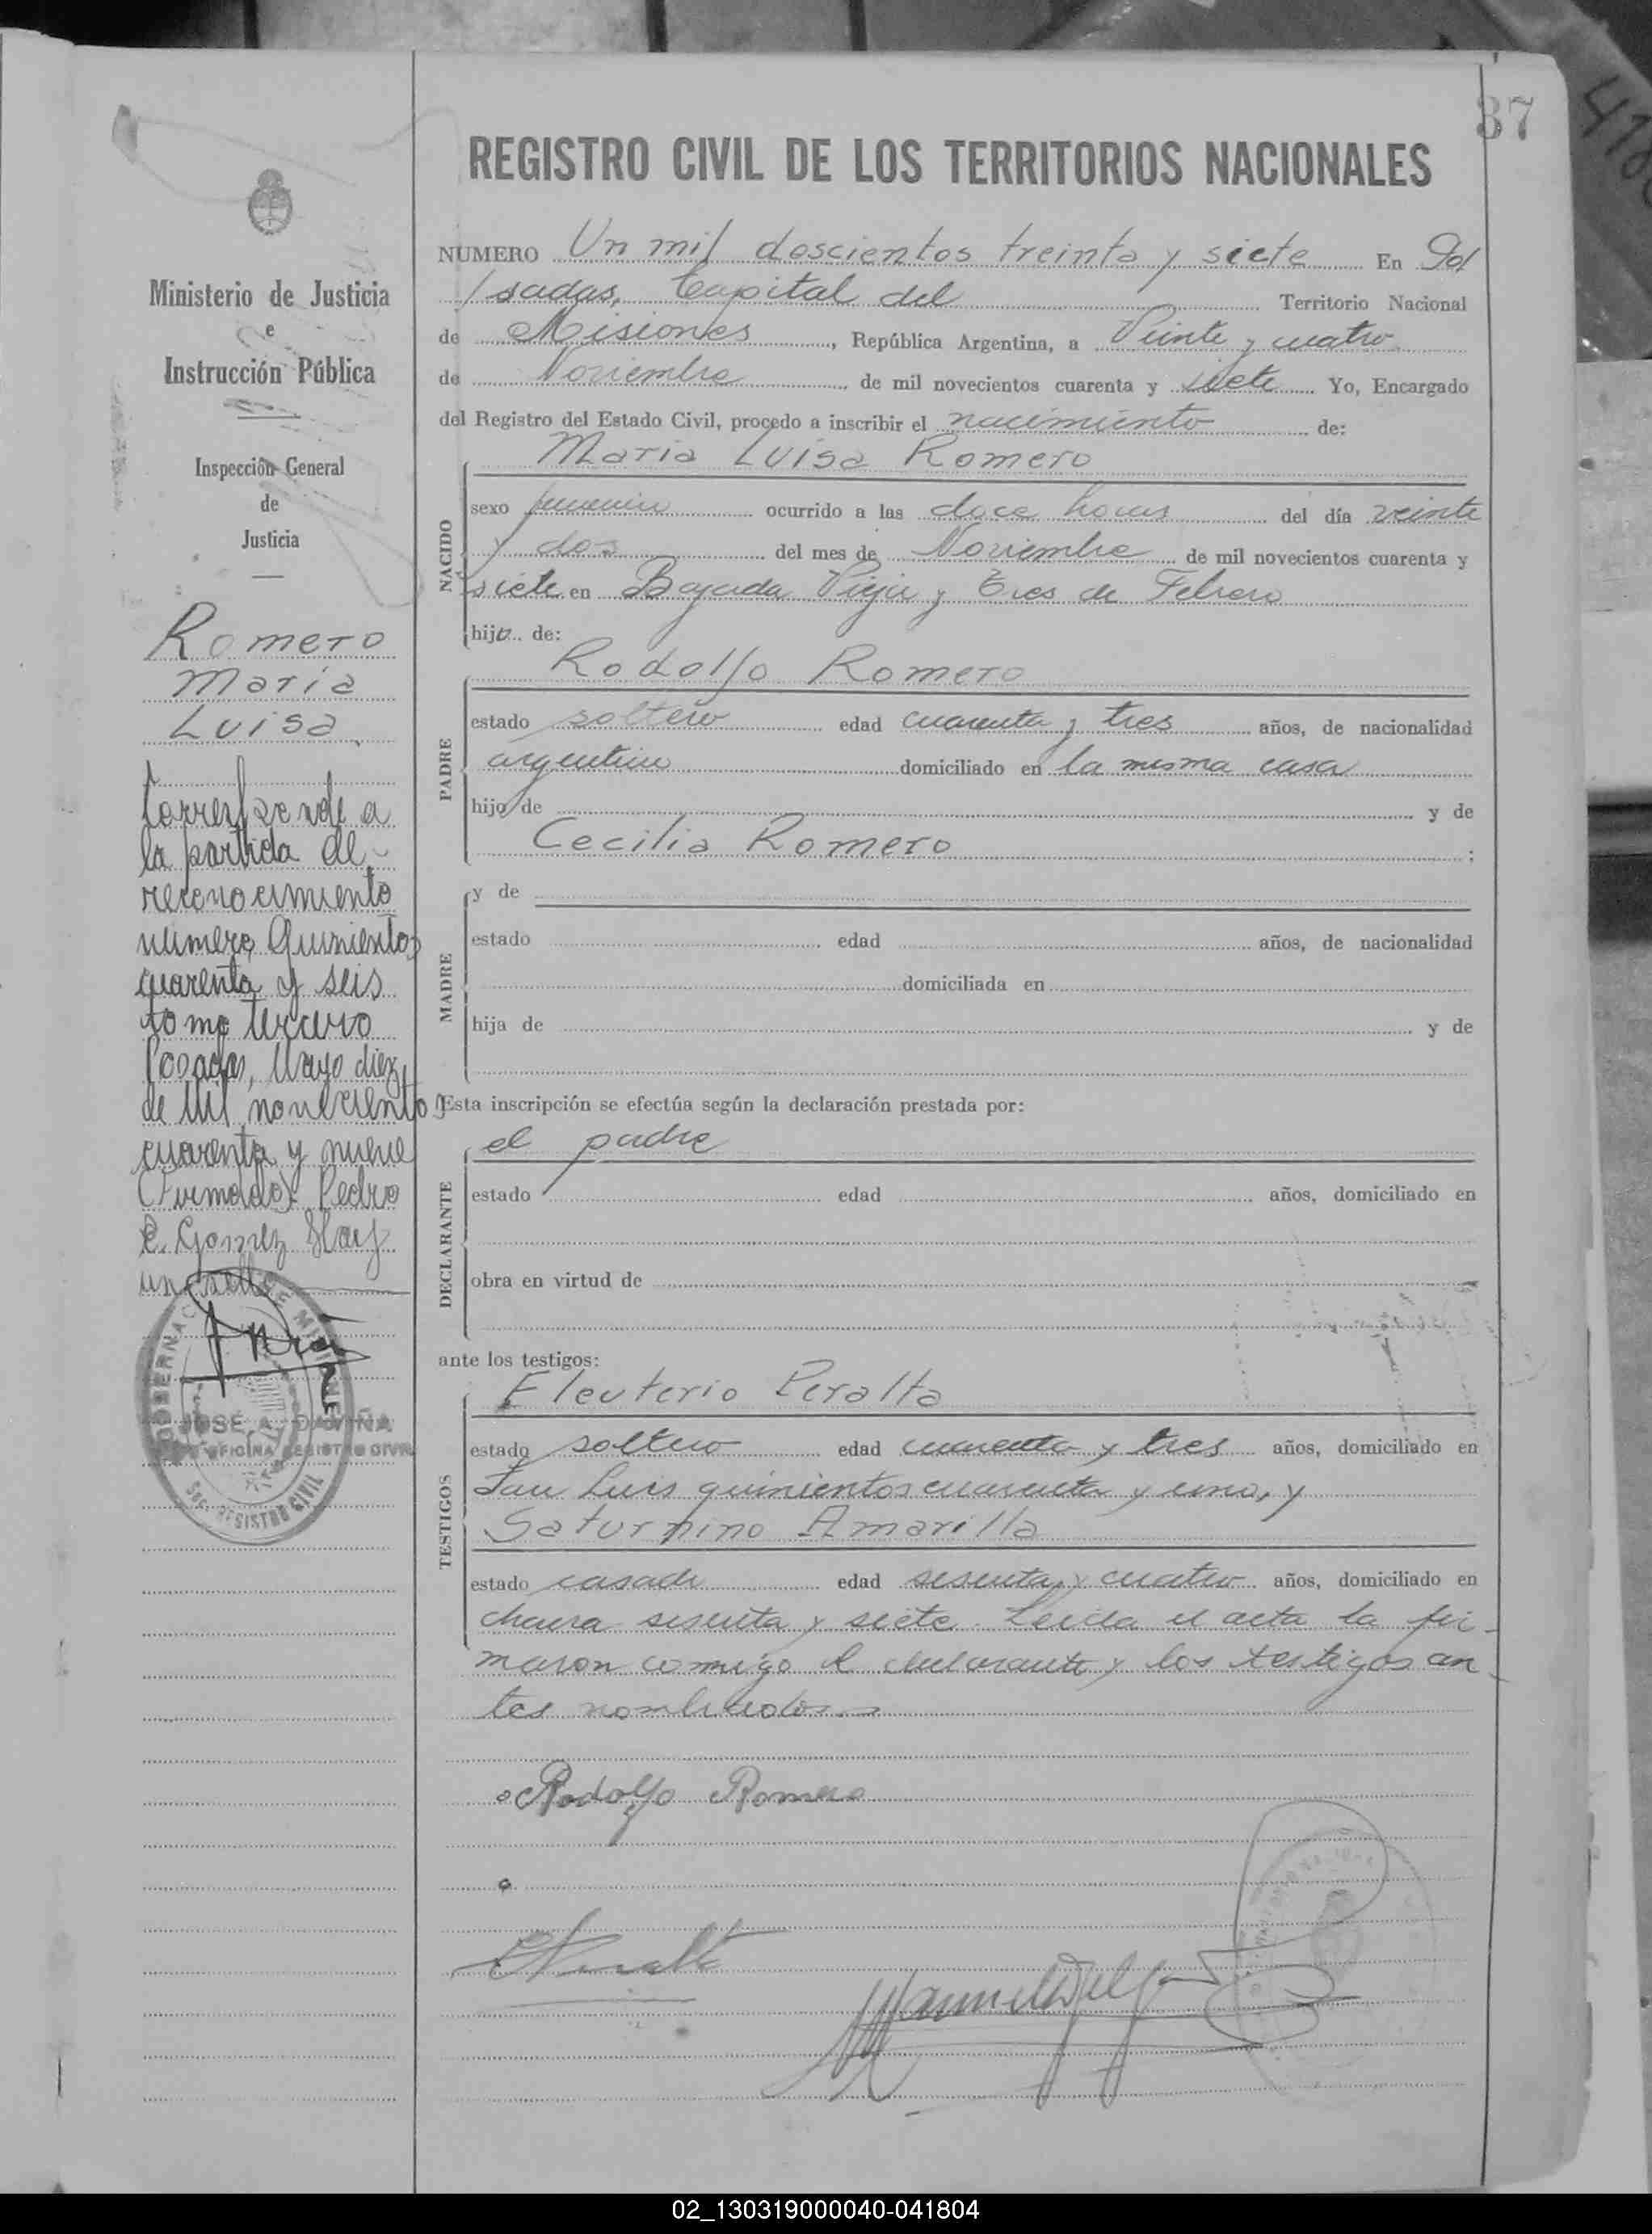 37
REGISTRO CIVIL DE LOS TERRITORIOS NACIONALES
NUMERO Un mil doscientos treinta y siete En Po/
/sadas, Capital del Territorio Nacional
de Misiones, República Argentina, a Veinte y cuatro
de Noviembre de mil novecientos cuarenta y siete Yo, Encargado
del Registro del Estado Civil, procedo a inscribir el nacimiento de:
Maria Luisa Romero
NACIDO
sexo femenino ocurrido a las doce horas del día veinte
y dos del mes de Noviembre de mil novecientos cuarenta y
siete en Bajada Vieja y Tres de Febrero
hija de:
Rodolfo Romero
PADRE
estado soltero edad cuarenta y tres años, de nacionalidad
argentino domiciliado en la misma casa
hijo de y de
Cecilia Romero ;
MADRE
y de
estado edad años, de nacionalidad
domiciliada en
hija de y de
Esta inscripción se efectúa según la declaración prestada por:
el padre
DECLARANTE
estado edad años, domiciliado en
obra en virtud de
ante los testigos:
Eleuterio Peralta
TESTIGOS
estado soltero edad cuarenta y tres años, domiciliado en
San Luis quinientos cuarenta y uno, y
Saturnino Amarilla
estado casado edad sesenta y cuatro años, domiciliado en
chacra sesenta y siete. Leída el acta la fir-
maron comigo el declarante y los testigos an-
tes nombrados.
Rodolfo Romero
Ministerio de Justicia
e
Instrucción Pública
Inspección General
de
Justicia
Romero
Maria
Luisa.
Corresponde a
la partida de
reconocimiento
número Quinientos
cuarenta y seis
tomo tercero
Posadas, Mayo diez
de Mil novecientos
cuarenta y nueve
(Firmado) Pedro
C. Gomez Hay
un sello
JOSÉ A. DAVIÑA
OFICINA REGISTRO CIVIL
02_130319000040-041804